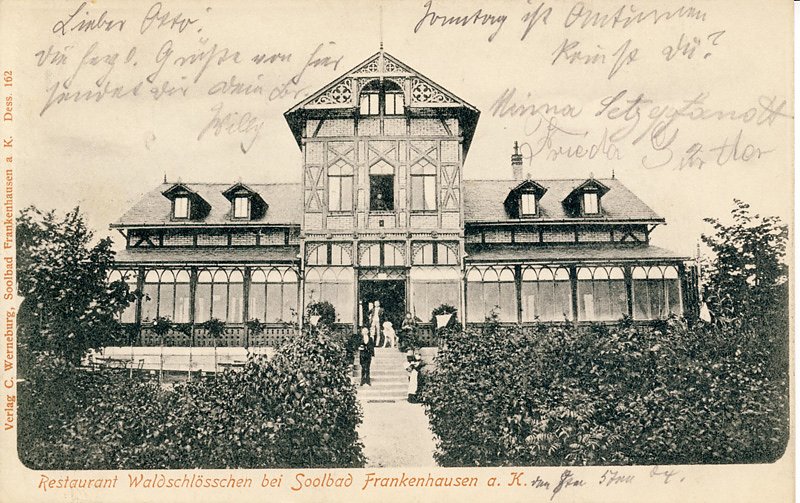 Lieber Otto!
die herzl. Grüße von hier
sendet dir dein Br.
Willy
Sonntag ist
kommst du?
Minna
Frieda
Verlag C. Werneburg, Soolbad Frankenhausen a K. Dess. 162
Restaurant Waldschlösschen bei Soolbad Frankenhausen a. K. den 5ten 04.